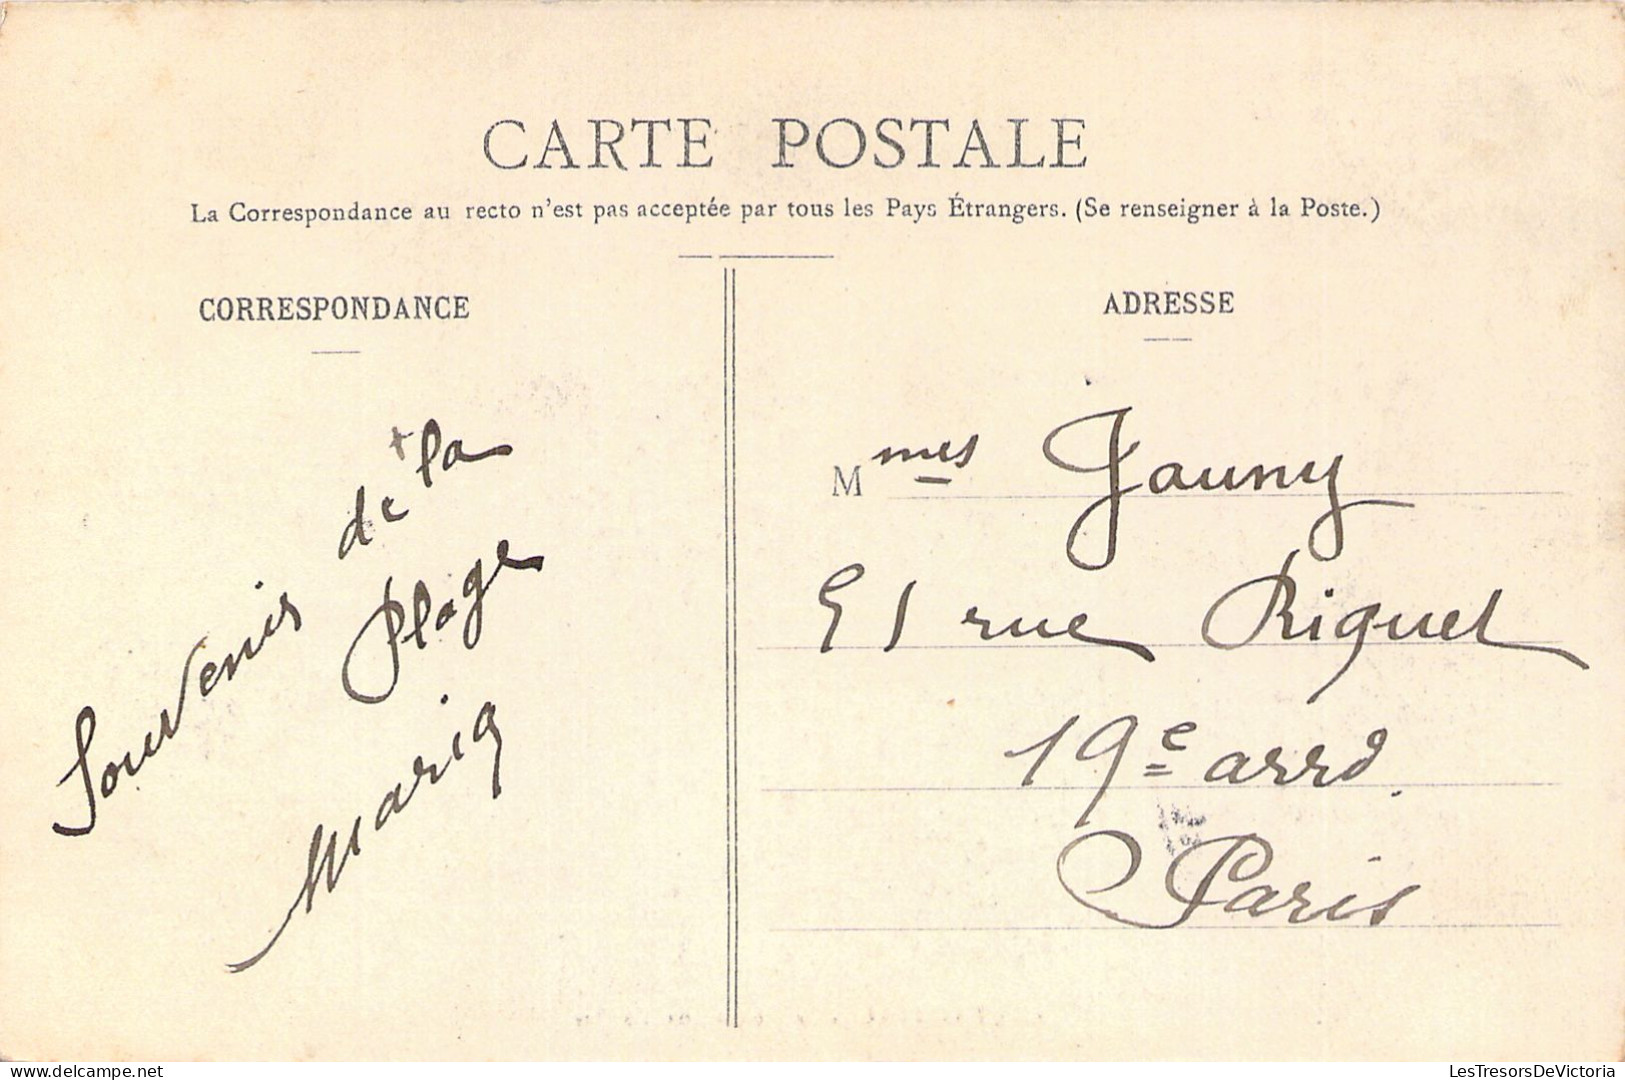 CARTE POSTALE
La Correspondance au recto n'est pas acceptée par tous les Pays Étrangers. (Se renseigner à la Poste.)
CORRESPONDANCE
Souvenir de la
Plage
ADRESSE
Mmes Jauny
51 rue Riquet
19e arrd.
Paris
LesTresorsDeVictoria